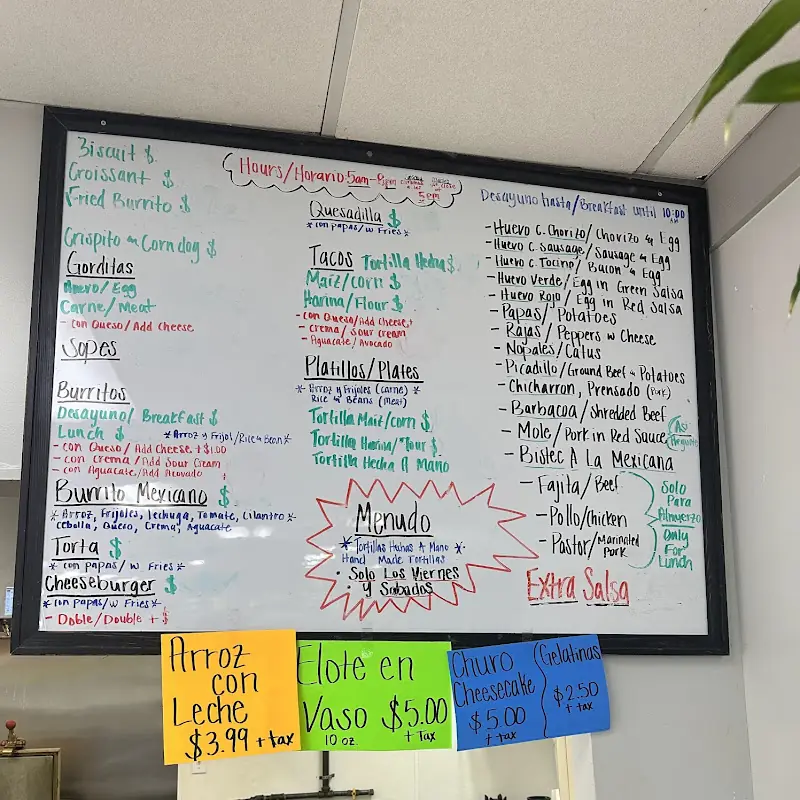 Biscuit $
Croissant $
Fried Burrito $
Crispito or Corn dog $
Gorditas
Huevo/Egg
Carne/Meat
- con Queso/Add Cheese
Sopes
Burritos
Desayuno/Breakfast $
Lunch $ *Arroz y Frijol/Rice & Bean*
- con Queso/Add Cheese +$1.00
- con Crema/Add Sour Cream
- con Aguacate/Add Avocado
Burrito Mexicano $
*Arroz, Frijoles, Lechuga, Tomate, Cilantro*
Cebolla, Queso, Crema, Aguacate
Torta $
*con papas/w Fries*
Cheeseburger $
*con papas/w Fries*
- Doble/Double + $
Hours/Horario: 5am-8pm
5pm
Quesadilla $
*con papas/w Fries*
Tacos Tortilla Hecha $
Maiz/corn $
Harina/Flour $
- con Queso/Add Cheese
- Crema/Sour Cream
- Aguacate/Avocado
Platillos/Plates
*Arroz y Frijoles (carne)*
Rice & Beans (meat)
Tortilla Maiz/corn $
Tortilla Harina/Flour $
Tortilla Hecha A Mano
Menudo
*Tortillas Hechas A Mano*
Hand Made Tortillas
• Solo Los Viernes
• y Sabados
Desayuno hasta/Breakfast until 10:00 AM
- Huevo C. Chorizo/Chorizo & Egg
- Huevo C. Sausage/Sausage & Egg
- Huevo C. Tocino/Bacon & Egg
- Huevo Verde/Egg in Green Salsa
- Huevo Rojo/Egg in Red Salsa
- Papas/Potatoes
- Rajas/Peppers w Cheese
- Nopales/Catus
- Picadillo/Ground Beef & Potatoes
- Chicharron, Prensado (Pork)
- Barbacoa/Shredded Beef
- Mole/Pork in Red Sauce
- Bistec A La Mexicana
- Fajita/Beef
- Pollo/Chicken
- Pastor/Marinated Pork
Solo
Para
Almuerzo
Only
For
Lunch
Extra Salsa
Arroz
con
Leche
$3.99 + tax
Elote en
Vaso $5.00
10 oz. + Tax
Churo
Cheesecake
$5.00
+ tax
Gelatinas
$2.50
+ tax